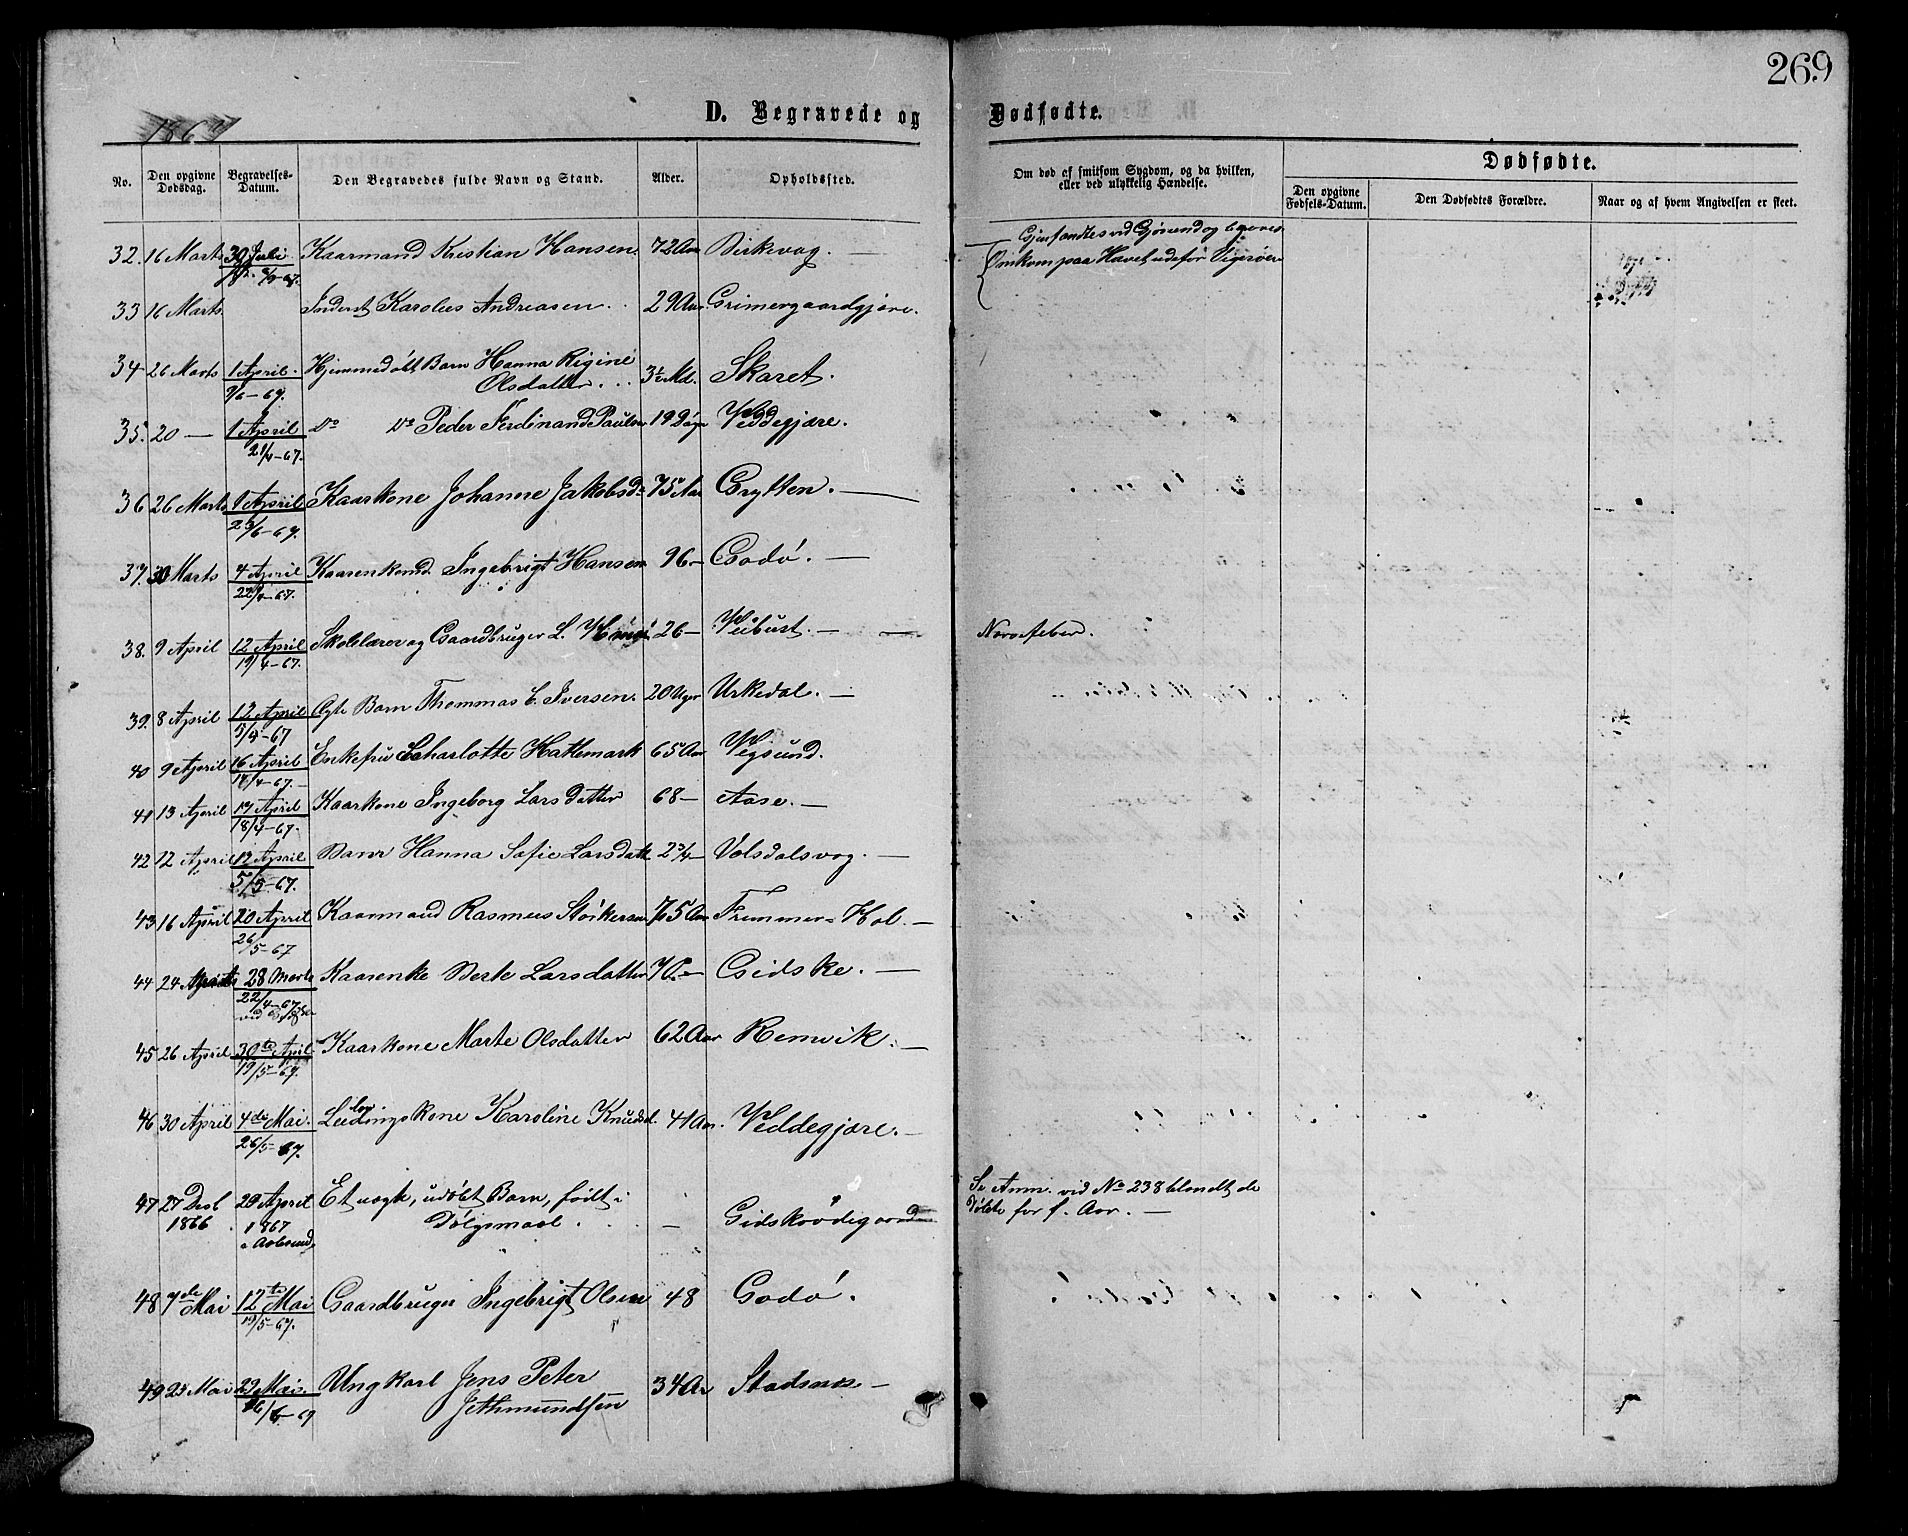 269
1867
D. Begravede og Dødfødte.
No. Den opgivne Dødsdag. Begravelses-Datum. Den Begravedes fulde Navn og Stand. Alder. Opholdssted. Om død af smitsom Sygdom, og da hvilken, eller ved ulykkelig Hændelse. Dødfødte.
Den opgivne Fødsels-Datum. Den Dødfødtes Forældre. Naar og af hvem Angivelsen er skeet.
32. 16 Marts 30 Juli Kaarmand Kristian Hansen. 72 Aar Birkvag. — Gjenfandtes ved
Omkom paa Havet udefor
33 16 Marts Inderst Karolus Andreasen 29 Aar Grimergaardgjære.
34 26 Marts 1 April Hjemmedøbt Barn Hanna Rigine 3½ Md. Skaret.
9/6-67. Olsdatter
35. 20 — 1 April Do Do Peder Ferdinand Paulsen 19 Dage Veddegjære.
21/4-67.
36 26 Marts 1 April Kaarkone Johanne Jakobsd. 75 Aar Grytten. —
23/6-67.
37. 30 Marts 4 April Ingebrigt Hansen 96 — Godø. —
22/4-67.
38. 9 April 12 April Skolelærer og Gaardbruger L. 26 — Vebust. — Nervefeber.
19/4-67.
39. 8 April 12 April Ægte Barn Thommas E. Iversen. 20 Uger Urkedal. —
5/4-67
40 9 April 16 April Enkefru Charlotte Hattemark 65 Aar Vegsund.
18/4-67.
41 13 April 17 April Kaarkone Ingeborg Larsdatter 68 — Aase. —
18/4-67.
42 12 April 17 April Barn Hanna Sofie Larsdatt 2¾ — Volsdalsvag. —
5/5-67.
43 16 April 20 April Kaarmand Rasmus Størkersen 75 Aar Fremmer-Hol. —
26/5-67
44 24 Marts 28 Marts Kaarenke Berte Larsdatter Gidske. —
22/4-67.
45 26 April 30te April Kaarkone Marte Olsdatter 62 Aar Remvik. —
19/5-67.
46 30 April 4de Mai. Karoline Knudsd. 41 Aar. Veddegjære. —
26/5-67.
47 27 Desb 20 April Et uægte, udøbt Barn, født i Se Anm. ved No 238 blandt de
1866 1867 Dølgsmaal. — Gidskødegaard Døbte for f. Aar. —
48 7de Mai 12te Mai Gaardbruger Ingebrigt Olsen 48 Godø.
19/5-67.
49 25 Mai 29 Mai Ungkarl Jens Peter 34 Aar Stadsnes —
16/6-67 Jethmundsen